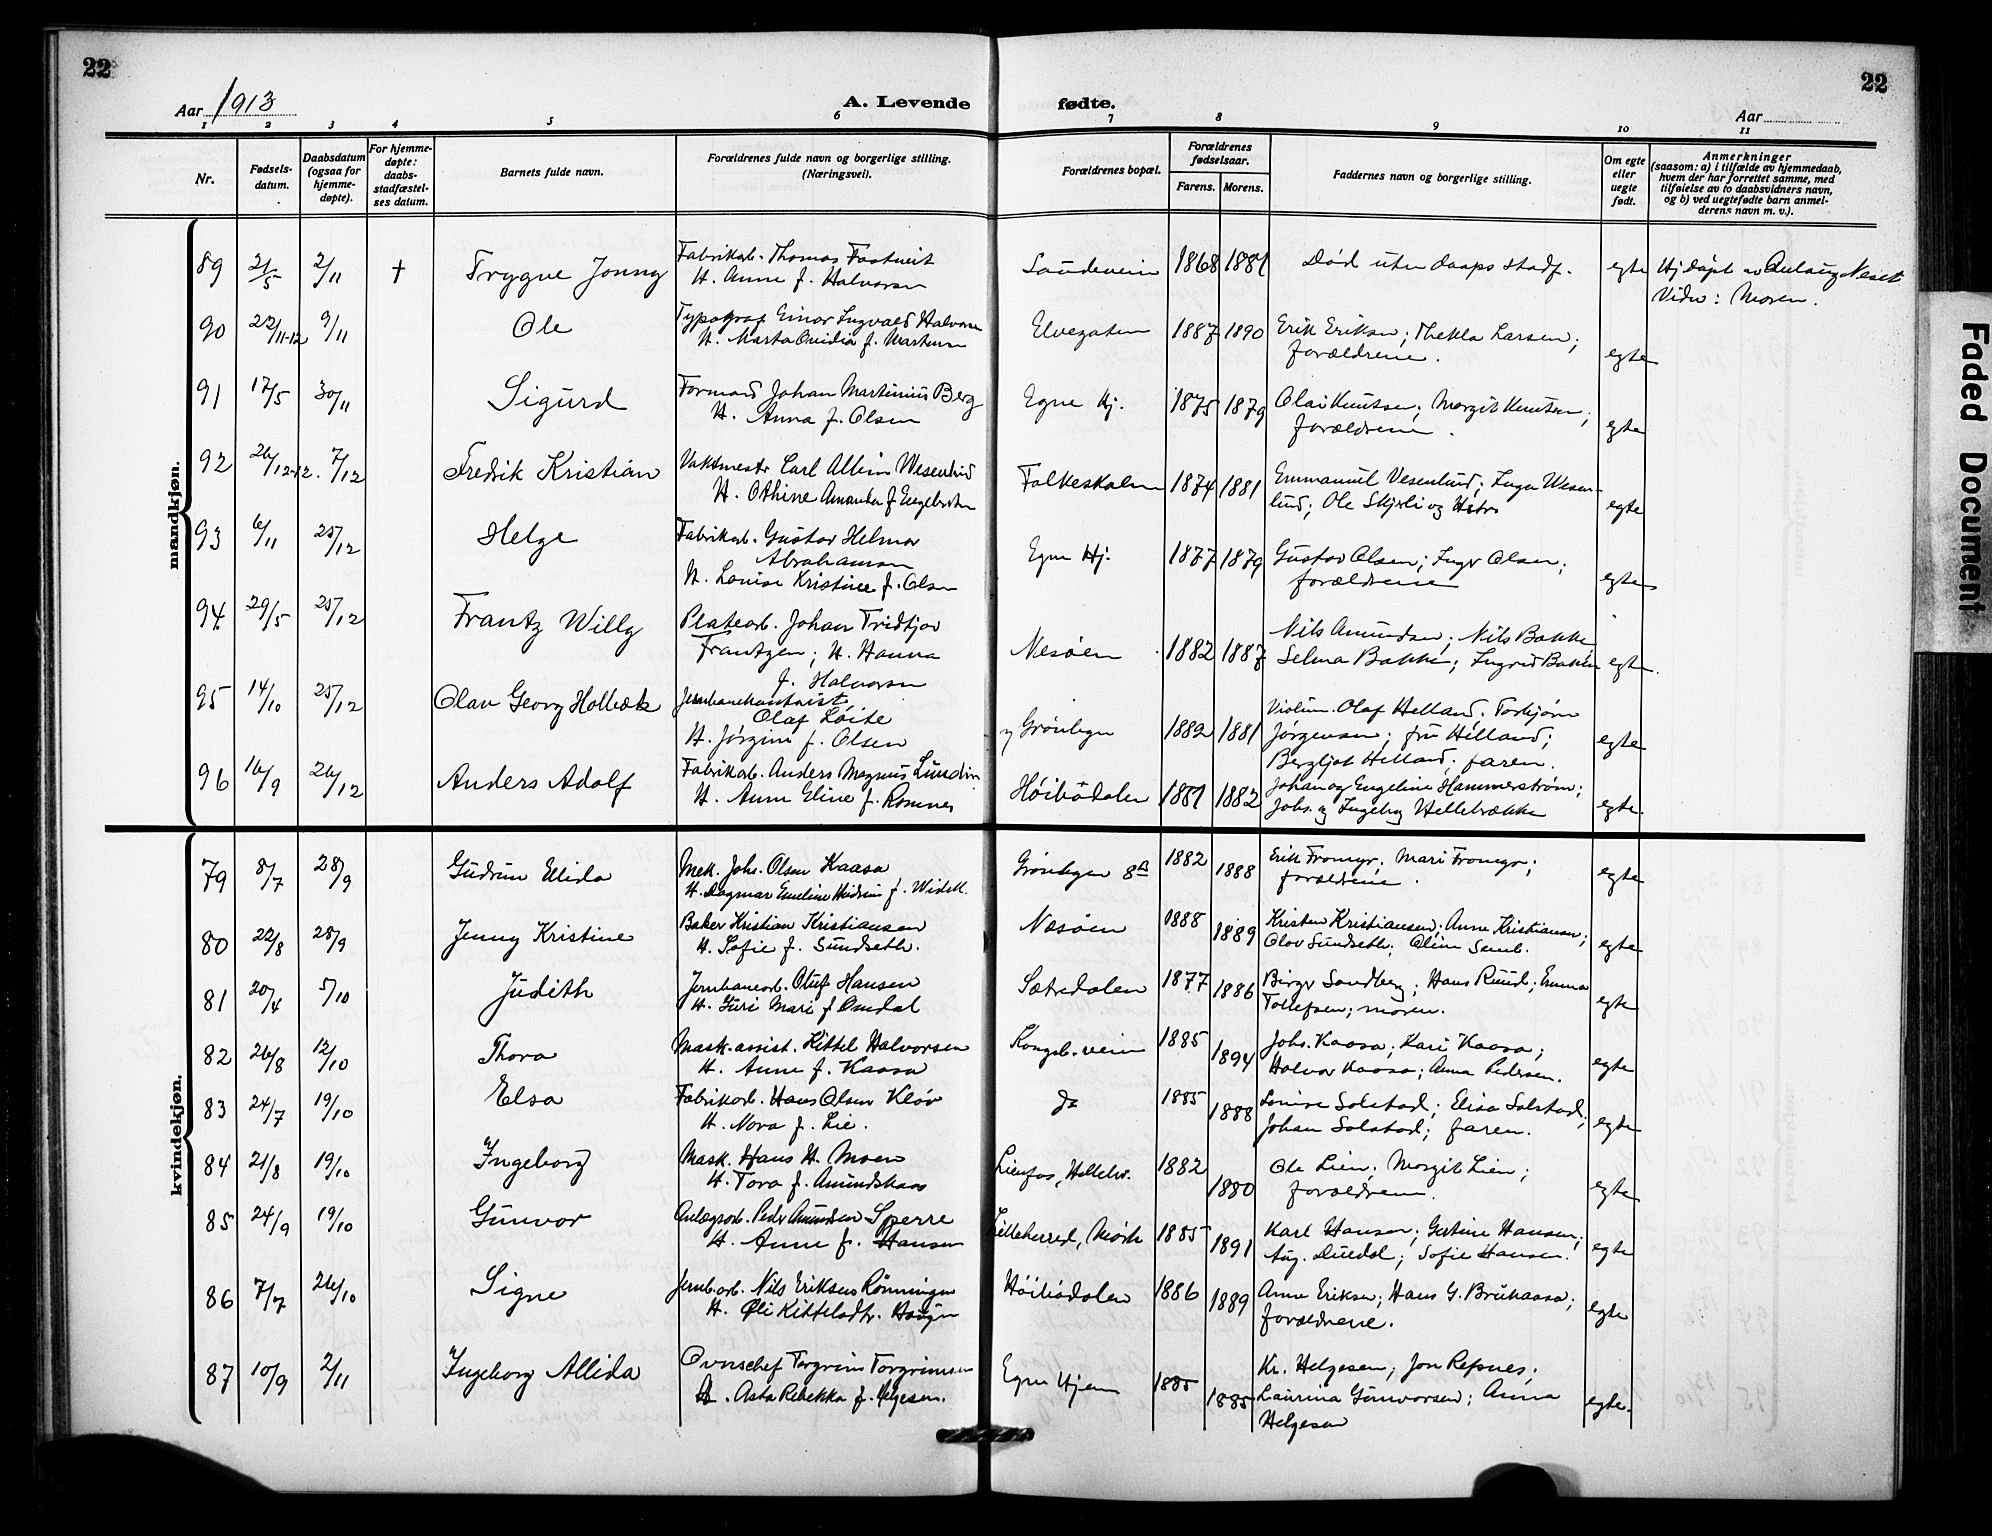 22
22
Aar 1913
A. Levende
fødte.
Aar
1 2 3 4 5 6 7 8 9 10 11
Nr.
Fødsels-
datum.
Daabsdatum
(ogsaa for
hjemme-
døpte).
For hjemme-
døpte:
daabs-
stadfæstel-
ses datum.
Barnets fulde navn.
Forældrenes fulde navn og borgerlige stilling.
(Næringsvei).
Forældrenes bopæl.
Forældrenes
fødselsaar.
Farens. Morens.
Faddernes navn og borgerlige stilling.
Om egte
eller
uegte
født.
Anmerkninger
(saasom: a) i tilfælde av hjemmedaab,
hvem der har forrettet samme, med
tilføielse av to daabsvidners navn,
og b) ved uegtefødte barn anmel-
derens navn m. v.).
mandkjøn.
89 21/5 2/11 † Trygve Jonny Fabrikarb. Thomas Fostveit Saudeveien 1868 1881 Død uten daaps stadf. egte Hjdøpt av Aulaug Neset
H. Anne f. Halvorsen Vidn: Moren.
90 22/11-12 9/11 Ole Typograf Einar Ingvald Halvorsen Elvegaten 1887 1890 Erik Eriksen; Thekla Larsen;
H. Marta Ovidia f. Martinsen forældrene. egte
91 17/5 30/11 Sigurd Formand Johan Martinius Berg Egne Hj. 1875 1879 Olai Knutsen; Margit Knutsen;
H. Anna f. Olsen forældrene. egte
92 26/12-12. 7/12 Fredrik Kristian Vaktmestr Carl Albin Wesenlund Folkeskolen 1874 1881 Emmanuel Vesenlund; Inga Wesen-
H. Othine Amanda f Engebretsen lund; Ole Skjeli og Hstr egte
93 6/11 25/12 Helge Fabrikarb. Gustav Helmar
Abrahamsen Egne Hj. 1877 1879 Gustav Olsen; Inga Olsen;
H. Louise Kristine f. Olsen forældrene egte
94 29/5 25/12 Frantz Willy Platearb. Johan Fridtjov Nils Amundsen; Nils Bakke
Frantzen; H. Hanna Nesøen 1882 1887 Selma Bakke; Ingrid Bakken egte.
f. Halvorsen
95 14/10 25/12 Olav Georg Holbæk Jernbanekontorist Violin. Olaf Helland; Torbjørn
Olaf Løite Grønbyen 1882 1881 Jørgensen; fru Helland; egte
H. Jørgine f. Olsen Bergljot Helland; faren.
96 16/9 26/12 Anders Adolf Fabrikarb. Anders Magnus Lundin Høibødalen 1881 1882 Johan og Engeline Hammerstrøm;
H. Anne Eline f. Romnes Johs. og Ingeborg Hellebrække egte.
kvindekjøn.
79 8/7 28/9 Gudrun Elida Mek. Johs. Olsen Kaasa Grønbyen 8A 1882 1888 Erik Fromyr; Mari Fromyr;
H. Dagmar Emeline f. Widek. forældrene. egte
80 22/8 28/9 Jenny Kristine Baker Kristian Kristiansen Næsøen 1888 1889 Kristen Kristiansen; Anne Kristiansen;
H. Sofie f. Sundseth. Olav Sundseth; Oline Semb. egte
81 20/4 5/10 Judith Jernbanearb. Oluf Hansen Sætredalen 1877 1886 Birger Sandberg; Hans Ruud; Emma
H. Guri Mari f Omdal Tollefsen; moren. egte
82 26/8 12/10 Thora Mask.-assist. Kittel Halvorsen Kongsb.veien 1885 1894 Johs. Kaasa; Kari Kaasa;
H. Anne f. Kaasa Halvor Kaasa; Anna Pedersen. egte
83 24/7 19/10 Elsa Fabrikarb. Hans Olsen Kløv do 1885 1888 Louise Solstad; Elisa Solstad;
H. Nora f. Lie. Johan Solstad; faren. egte
84 21/8 19/10 Ingeborg Mask. Hans H. Moen Lienfos, Hitterd. 1882 1880 Ole Lien; Margit Lien;
H. Tora f. Amundshaas forældrene. egte
85 24/9 19/10 Gunvor Anlægsarb. Peder Amundsen Sperre Lilleherred, 1885 1891 Karl Hansen; Gertine Hansen;
H. Anne f. Hansen Aug. Duedal; Sofie Hansen. egte
86 7/7 26/10 Signe Jernb.arb. Nils Eriksen Rønningen Høibødalen 1886 1889 Anne Eriksen; Hans G. Brukaasa;
H. Øli Kittelsdtr. Haugn forældrene. egte
87 10/9 2/11 Ingeborg Allida Ovnschef Torgrim Torgrimsen Egne Hjem 1885 1885 Kr. Helgesen; Jon Refsnes;
H. Asta Rebekka f. Helgesen. Laurina Gunvorsen; Anna
Helgesen egte.
Faded Document